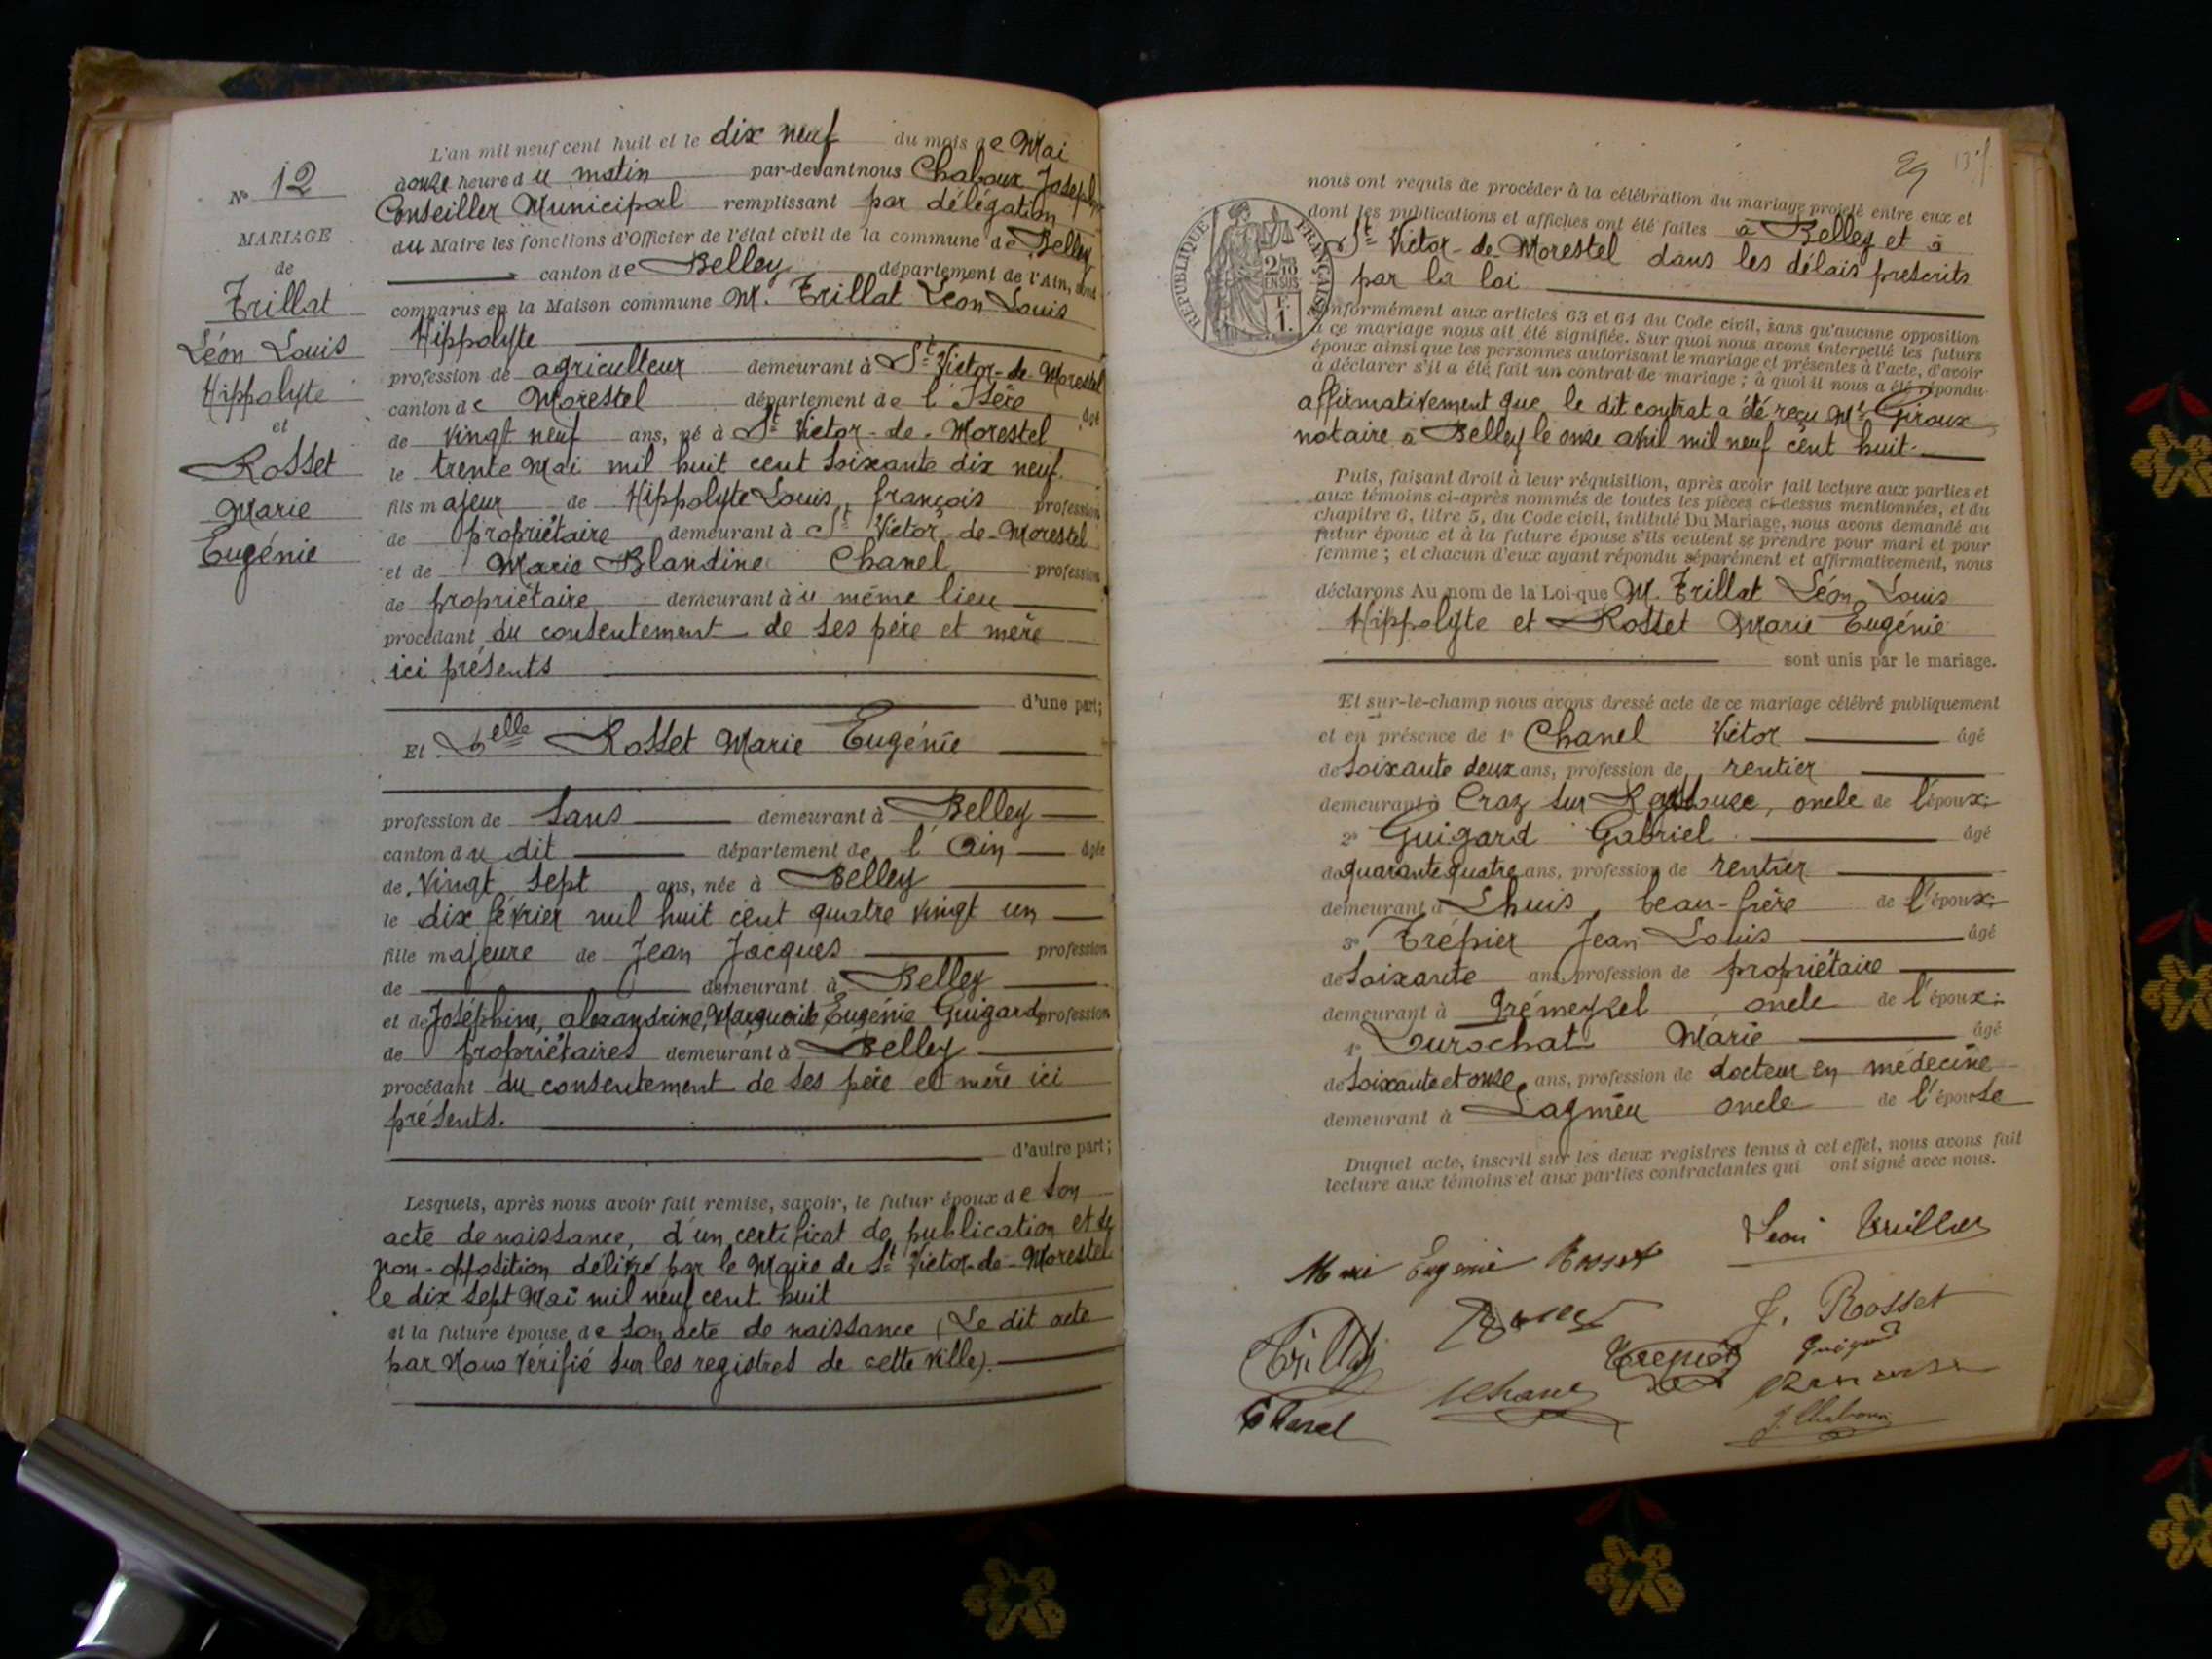 N° 12
MARIAGE
de
Trillat
Léon Louis
Hippolyte
et
Rosset
Marie
Eugénie
L'an mil neuf cent huit et le dix neuf du mois de Mai
heure du matin par-devant nous Chaboux Joseph
Conseiller Municipal remplissant par délégation
du Maire les fonctions d'Officier de l'état civil de la commune de Belley
canton de Belley département de l'Ain, sont
comparus en la Maison commune M. Trillat Léon Louis
Hippolyte
profession de agriculteur demeurant à St Victor-de-Morestel
canton de Morestel département de l'Isère âgé
de vingt neuf ans, né à St Victor-de-Morestel
le trente Mai mil huit cent soixante dix neuf
fils majeur de Hippolyte Louis, françois profession
de propriétaire demeurant à St Victor-de-Morestel
et de Marie Blandine Chanel profession
de propriétaire demeurant à u même lieu
procédant du consentement de ses père et mère
ici présents
d'une part;
Et Delle Rosset Marie Eugénie
profession de Sans demeurant à Belley
canton du dit département de l'Ain âgée
de vingt sept ans, née à Belley
le dix février mil huit cent quatre vingt un
fille majeure de Jean Jacques profession
de demeurant à Belley
et de Joséphine, alexandrine, Marguerite Eugénie Guigard profession
de propriétaires demeurant à Belley
procédant du consentement de ses père et mère ici
présents.
d'autre part;
Lesquels, après nous avoir fait remise, savoir, le futur époux de son
acte de naissance, d'un certificat de publication et de
non-opposition délivré par le Maire de St Victor-de-Morestel
le dix sept Mai mil neuf cent huit
et la future épouse de son acte de naissance (Le dit acte
par Nous vérifié sur les registres de cette ville).
29
RÉPUBLIQUE FRANÇAISE
2/10
EN SUS
F.
1.
nous ont requis de procéder à la célébration du mariage projeté entre eux et
dont les publications et affiches ont été faites à Belley et à
St Victor-de-Morestel dans les délais prescrits
par la loi
conformément aux articles 63 et 64 du Code civil, sans qu'aucune opposition
à ce mariage nous ait été signifiée. Sur quoi nous avons interpellé les futurs
époux ainsi que les personnes autorisant le mariage et présentes à l'acte, d'avoir
à déclarer s'il a été fait un contrat de mariage ; à quoi il nous a été répondu
affirmativement que le dit contrat a été reçu Me Giroux
notaire à Belley le onze avril mil neuf cent huit.
Puis, faisant droit à leur réquisition, après avoir fait lecture aux parties et
aux témoins ci-après nommés de toutes les pièces ci-dessus mentionnées, et du
chapitre 6, titre 5, du Code civil, intitulé Du Mariage, nous avons demandé au
futur époux et à la future épouse s'ils veulent se prendre pour mari et pour
femme ; et chacun d'eux ayant répondu séparément et affirmativement, nous
déclarons Au nom de la Loi que M. Trillat Léon Louis
Hippolyte et Rosset Marie Eugénie
sont unis par le mariage.
Et sur-le-champ nous avons dressé acte de ce mariage célébré publiquement
et en présence de 1° Chanel Victor âgé
de soixante deux ans, profession de rentier
demeurant à Craz sur Reyssouze, oncle de l'époux.
2° Guigard Gabriel âgé
de quarante quatre ans, profession de rentier
demeurant à Lhuis, beau-frère de l'époux.
3° Trépier Jean Louis âgé
de soixante ans, profession de propriétaire
demeurant à Brémeyzel oncle de l'époux.
4° Durochat Marie âgé
de soixante et onze ans, profession de docteur en médecine
demeurant à Lagnieu oncle de l'épouse
Duquel acte, inscrit sur les deux registres tenus à cet effet, nous avons fait
lecture aux témoins et aux parties contractantes qui ont signé avec nous.
Leon Trillat
Marie Eugénie Rosset
J. Rosset
Trillat
Trepier
Guigard
Chanel
J. Chaboux